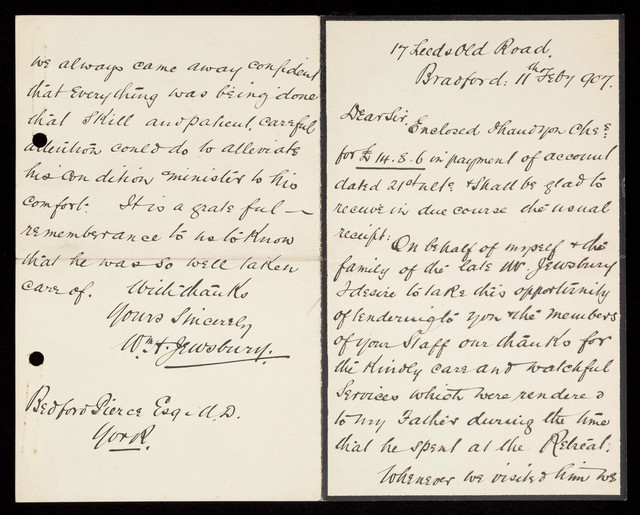 17 Leeds Old Road.
Bradford: 11th Feby 907.
Dear Sir,
Enclosed I hand you Chee:
for £14.8.6 in payment of account
dated 21st ulto & shall be glad to
receive in due course the usual
receipt:
On behalf of myself & the
family of the late Mr. Jewsbury
I desire to take this opportunity
of tendering to you & the members
of your Staff our thanks for
the kindly care and watchful
Services which were rendered
to my Father during the time
that he spent at the Retreat:
Whenever we visited him we
we always came away confident
that everything was being done
that skill and patient, careful
attention could do to alleviate
his condition & minister to his
comfort. It is a grateful —
remembrance to us to know
that he was so well taken
care of. With thanks
Yours Sincerely
Wm H. Jewsbury.
Bedford Pierce Esq. M.D.
York.